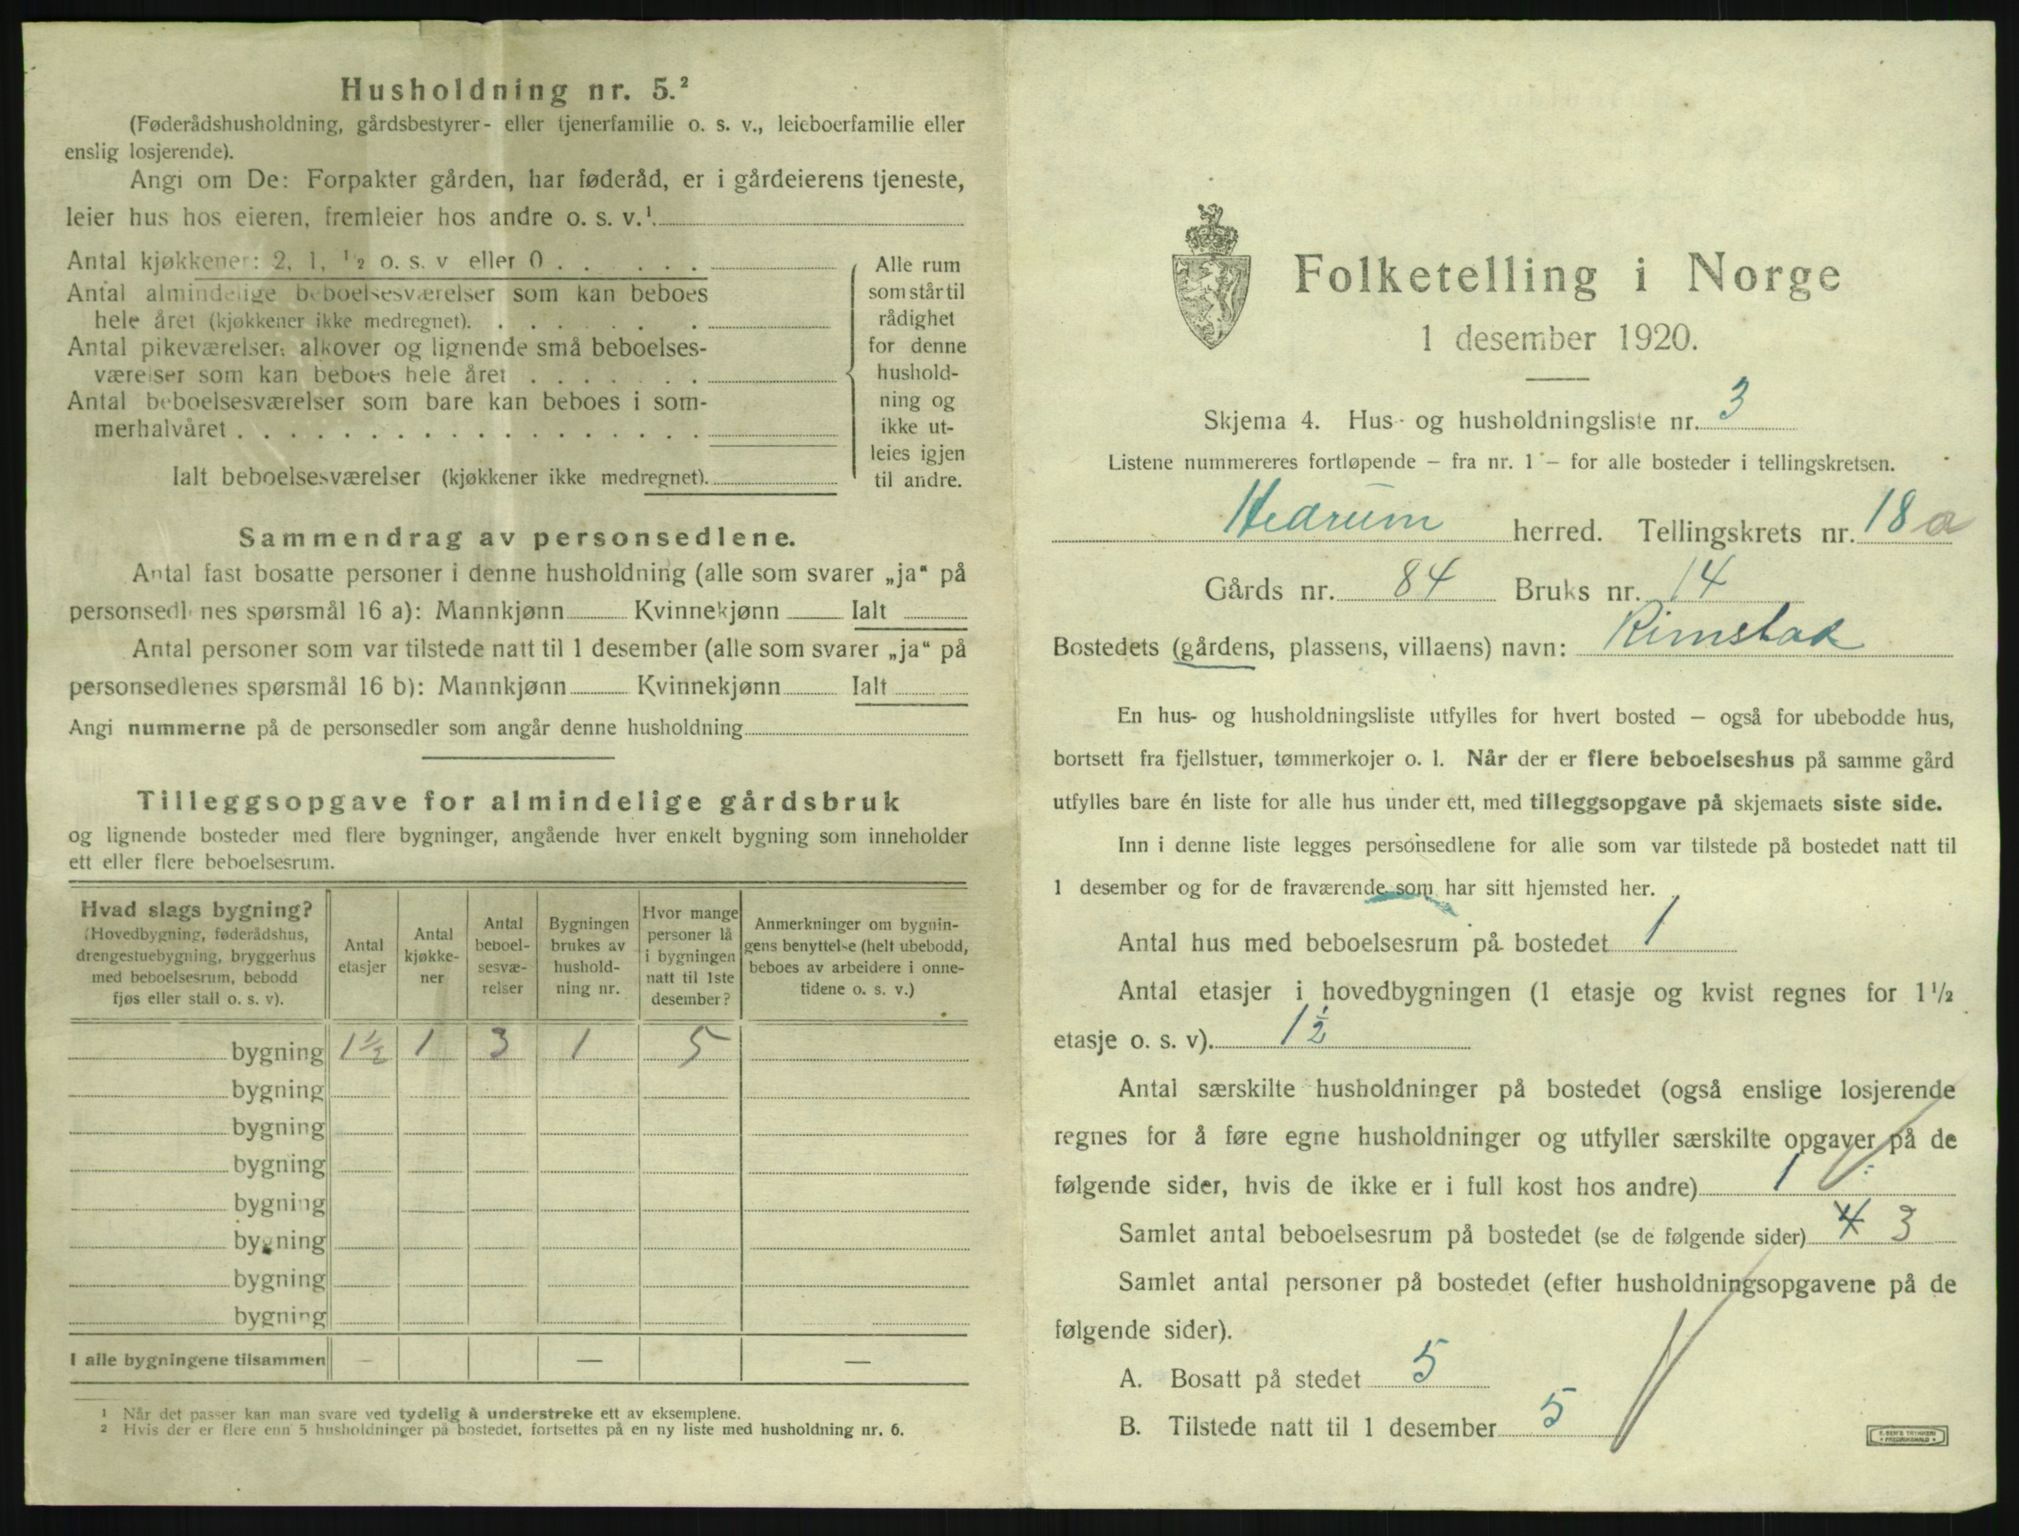 Husholdning nr. 5.²
(Føderådshusholdning, gårdsbestyrer- eller tjenerfamilie o. s. v., leieboerfamilie eller
enslig losjerende).
Angi om De: Forpakter gården, har føderåd, er i gårdeierens tjeneste,
leier hus hos eieren, fremleier hos andre o. s. v.¹
Antal kjøkkener: 2, 1, ½ o. s. v eller 0
Antal almindelige beboelsesværelser som kan beboes
hele året (kjøkkener ikke medregnet).
Antal pikeværelser, alkover og lignende små beboelses-
værelser som kan beboes hele året
Antal beboelsesværelser som bare kan beboes i som-
merhalvåret
Ialt beboelsesværelser (kjøkkener ikke medregnet).
Alle rum
som står til
rådighet
for denne
hushold-
ning og
ikke ut-
leies igjen
til andre.
Sammendrag av personsedlene.
Antal fast bosatte personer i denne husholdning (alle som svarer „ja" på
personsedlenes spørsmål 16 a): Mannkjønn Kvinnekjønn Ialt
Antal personer som var tilstede natt til 1 desember (alle som svarer „ja" på
personsedlenes spørsmål 16 b): Mannkjønn Kvinnekjønn Ialt
Angi nummerne på de personsedler som angår denne husholdning
Tilleggsopgave for almindelige gårdsbruk
og lignende bosteder med flere bygninger, angående hver enkelt bygning som inneholder
ett eller flere beboelsesrum.
Hvad slags bygning?
(Hovedbygning, føderådshus,
drengestuebygning, bryggerhus
med beboelsesrum, bebodd
fjøs eller stall o. s. v).
Antal
etasjer
Antal
kjøkke-
ner
Antal
beboel-
sesvæ-
relser
Bygningen
brukes av
hushold-
ning nr.
Hvor mange
personer lå
i bygningen
natt til 1ste
desember?
Anmerkninger om bygnin-
gens benyttelse (helt ubebodd,
beboes av arbeidere i onne-
tidene o. s. v.)
bygning 1½ 1 3 1 5
bygning
bygning
bygning
bygning
bygning
bygning
bygning
I alle bygningene tilsammen — — —
¹ Når det passer kan man svare ved tydelig å understreke ett av eksemplene.
² Hvis der er flere enn 5 husholdninger på bostedet, fortsettes på en ny liste med husholdning nr. 6.
Folketelling i Norge
1 desember 1920.
Skjema 4. Hus- og husholdningsliste nr. 3
Listene nummereres fortløpende – fra nr. 1 – for alle bosteder i tellingskretsen.
Hedrum herred. Tellingskrets nr. 18 a
Gårds nr. 84 Bruks nr. 14
Bostedets (gårdens, plassens, villaens) navn: Rimstad
En hus- og husholdningsliste utfylles for hvert bosted – også for ubebodde hus,
bortsett fra fjellstuer, tømmerkojer o. l. Når der er flere beboelseshus på samme gård
utfylles bare én liste for alle hus under ett, med tilleggsopgave på skjemaets siste side.
Inn i denne liste legges personsedlene for alle som var tilstede på bostedet natt til
1 desember og for de fraværende som har sitt hjemsted her.
Antal hus med beboelsesrum på bostedet 1
Antal etasjer i hovedbygningen (1 etasje og kvist regnes for 1½
etasje o. s. v). 1½
Antal særskilte husholdninger på bostedet (også enslige losjerende
regnes for å føre egne husholdninger og utfyller særskilte opgaver på de
følgende sider, hvis de ikke er i full kost hos andre) 1
Samlet antal beboelsesrum på bostedet (se de følgende sider) 4 3
Samlet antal personer på bostedet (efter husholdningsopgavene på de
følgende sider).
A. Bosatt på stedet 5
B. Tilstede natt til 1 desember 5